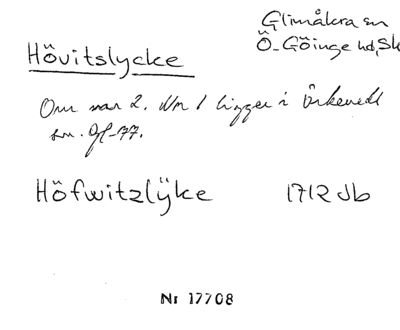 Glimåkra sn
Ö-Göinge hd, Sk
Hövitslycke
Om nam 2. Nr 1 ligger i Örkeneds
sn. Gl-77.
Höfwitzlÿke 1712 Jb
Nr 17708